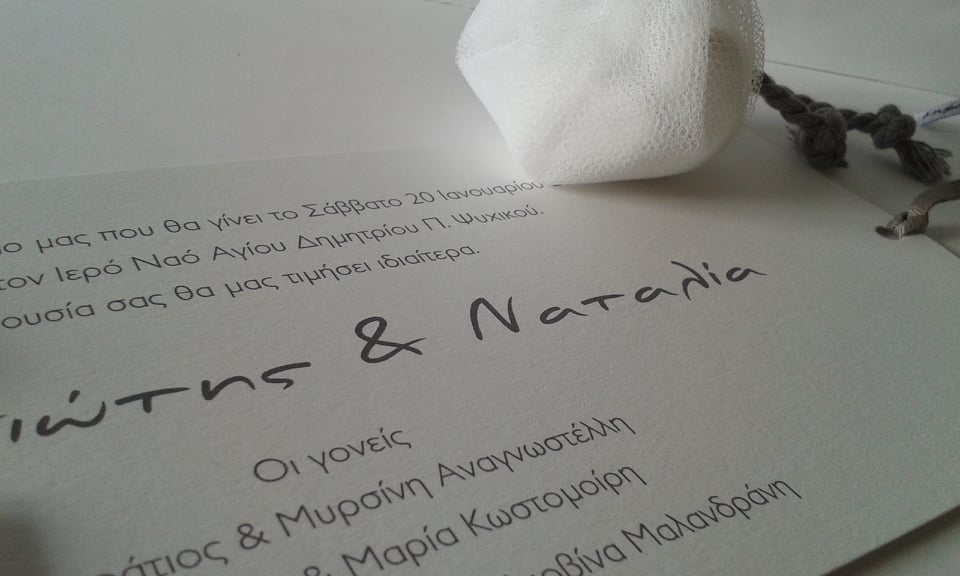 μας που θα γίνει το Σάββατο 20 Ιανουαρίου
Ιερό Ναό Αγίου Δημητρίου Π. Ψυχικού.
σας θα μας τιμήσει ιδιαίτερα.
& Ναταλία
Οι γονείς
& Μυρσίνη Αναγνωστέλλη
& Μαρία Κωστομοίρη
Μαλανδράνη